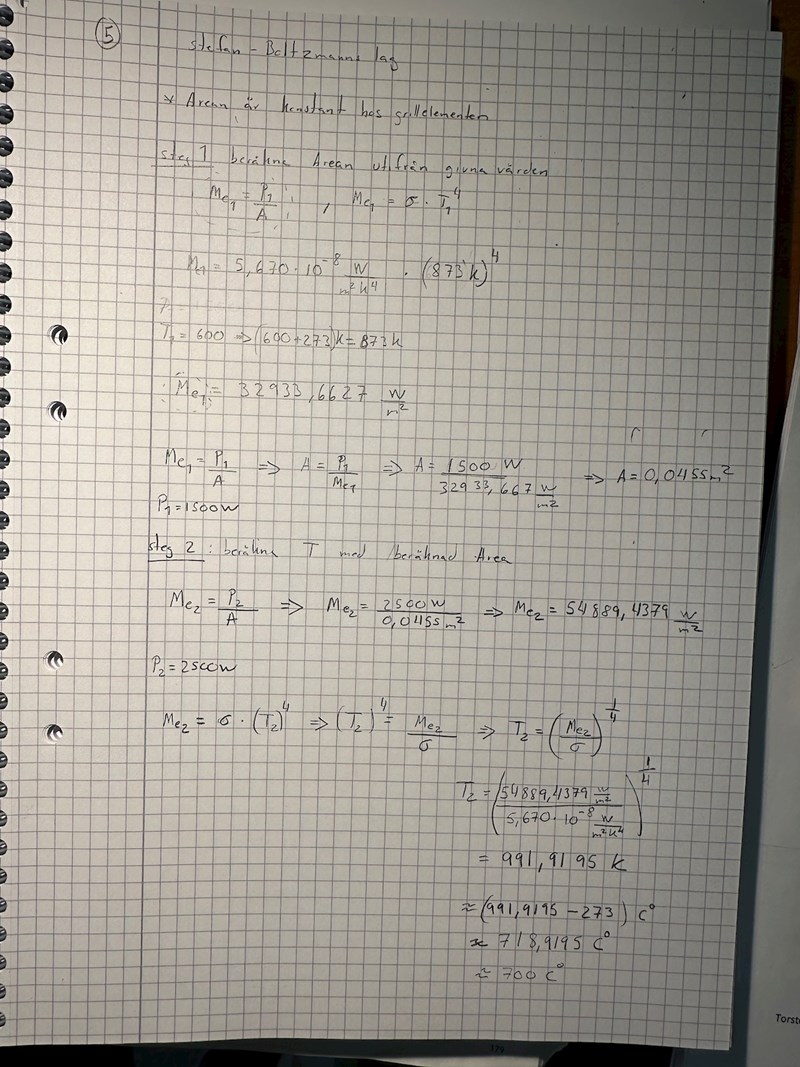 5
stefan - Boltzmanns lag
* Arean är konstant hos grillelementen
steg 1 beräkna Arean utifrån givna värden
Me₁ = P₁/A , Me₁ = σ · T₁⁴
M₁ = 5,670 · 10⁻⁸ W/m²K⁴ · (873 K)⁴
T₁ = 600 => (600+273)K = 873K
Me₁ = 32933,6627 W/m²
Me₁ = P₁/A => A = P₁/Me₁ => A = 1500 W / 32933,667 W/m² => A = 0,0455 m²
P₁ = 1500W
steg 2 : beräkna T med beräknad Area
Me₂ = P₂/A => Me₂ = 2500 W / 0,0455 m² => Me₂ = 54889,4379 W/m²
P₂ = 2500W
Me₂ = σ · (T₂)⁴ => (T₂)⁴ = Me₂/σ => T₂ = (Me₂/σ)^1/4
T₂ = (54889,4379 W/m² / 5,670 · 10⁻⁸ W/m²K⁴)^1/4
= 991,9195 K
≈ (991,9195 - 273) C°
≈ 718,9195 C°
≈ 700 C°
Torst